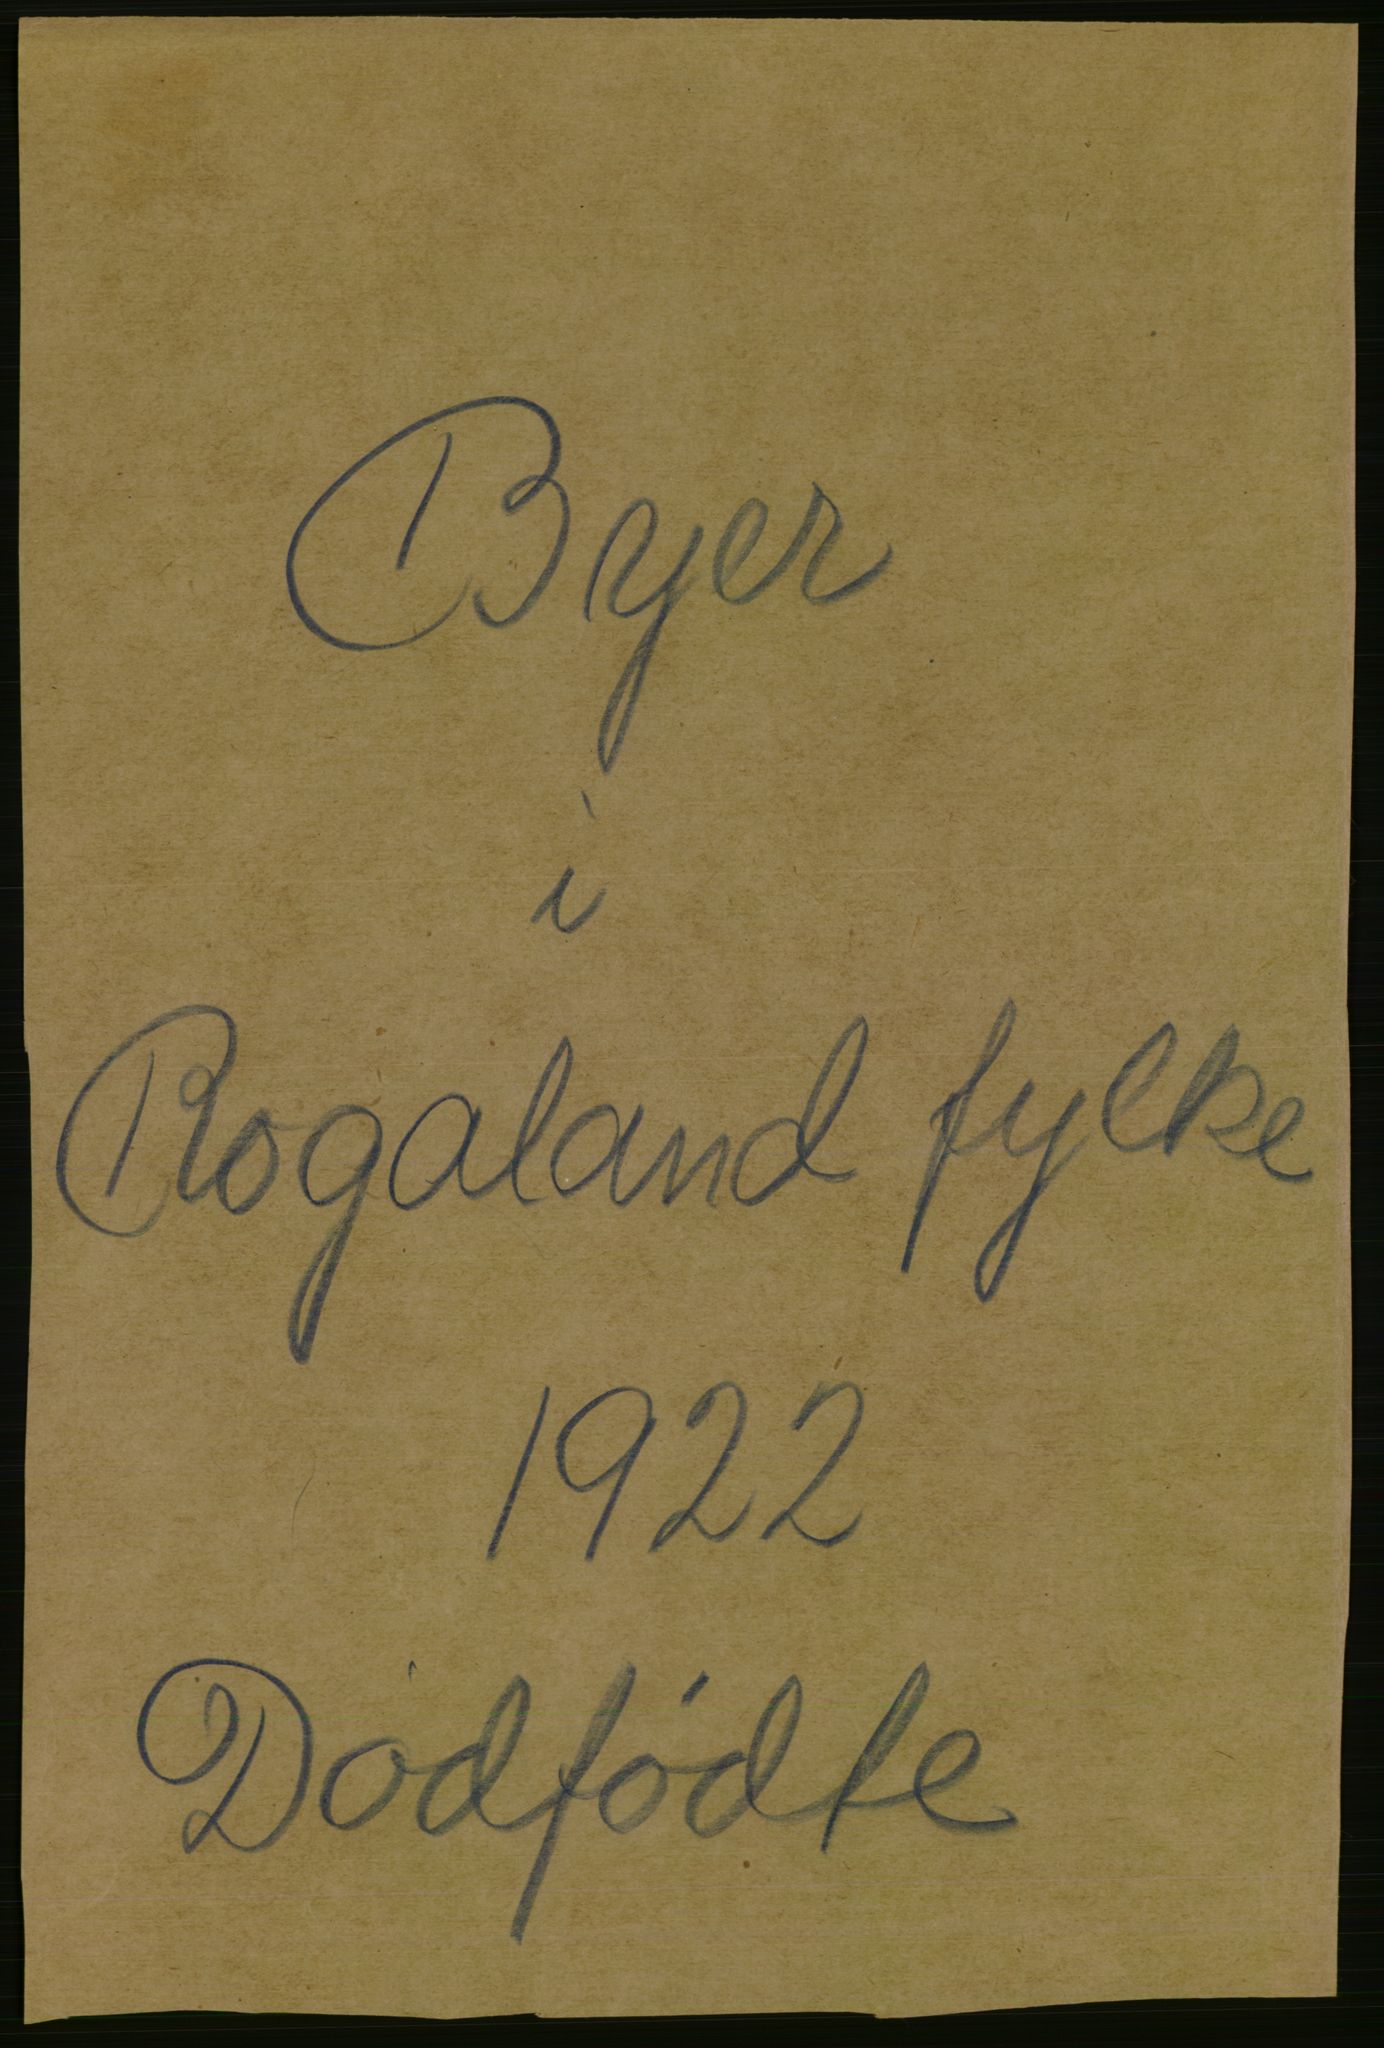 Byer
i
Rogaland fylke
1922
Dødfødte